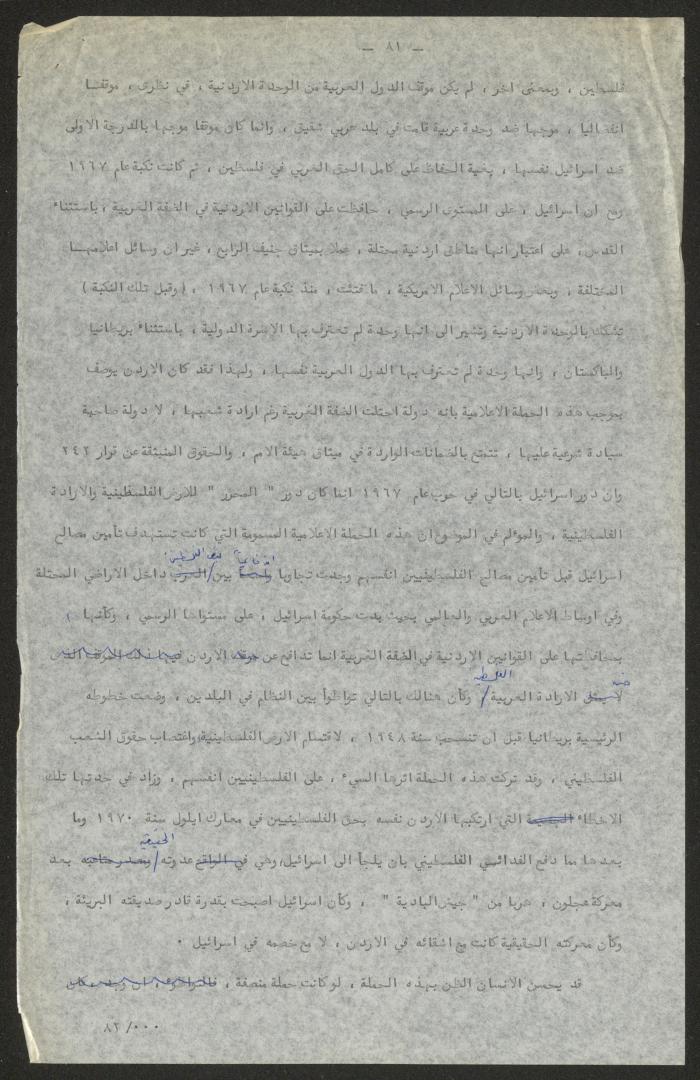 — ٨١ —
فلسطين ، وبمعنى اخر ، لم يكن موقف الدول العربية من الوحدة الاردنية ، في نظرى ، موقفا
انفصاليا ، موجها ضد وحدة عربية قامت في بلد عربي شقيق ، وانما كان موقفا موجها بالدرجة الاولى
ضد اسرائيل نفسها ، بغية الحفاظ على كامل الحق العربي في فلسطين ، ثم كانت نكبة عام ١٩٦٧
ومع ان اسرائيل ، على المستوى الرسمي ، حافظت على القوانين الاردنية في الضفة الغربية ، باستثناء
القدس ، على اعتبار انها مناطق اردنية محتلة ، عملا بميثاق جنيف الرابع ، غير ان وسائل اعلامهــا
المختلفة ، وبعض وسائل الاعلام الامريكية ، ما فتئت ، منذ نكبة عام ١٩٦٧ ، ( وقبل تلك النكبة )
تشكك بالوحدة الاردنية وتشير الى انها وحدة لم تعترف بها الاسرة الدولية ، باستثناء بريطانيا
والباكستان ، وانها وحدة لم تعترف بها الدول العربية نفسها ، ولهذا فقد كان الاردن يوصف
بموجب هذه الحملة الاعلامية بانه دولة احتلت الضفة الغربية رغم ارادة شعبها ، لا دولة صاحبة
سيادة شرعية عليها ، تتمتع بالضمانات الواردة في ميثاق هيئة الامم ، والحقوق المنبثقة عن قرار ٢٤٢
وان دور اسرائيل بالتالي في حرب عام ١٩٦٧ انما كان دور " المحرر " للارض الفلسطينية والارادة
الفلسطينية ، والمؤلم في الموضوع ان هذه الحملة الاعلامية المسمومة التي كانت تستهدف تأمين مصالح
اسرائيل قبل تأمين مصالح الفلسطينيين انفسهم وجدت تجاوبا بين داخل الاراضي المحتلة
وفي اوساط الاعلام العربي والعالمي بحيث بدت حكومة اسرائيل ، على مستواها الرسمي ، وكأنها
بمحافظتها على القوانين الاردنية في الضفة الغربية انما تدافع عن الاردن
ضد الارادة العربية / الفلسطينية وكأن هنالك بالتالي تواطؤا بين النظام في البلدين ، وضعت خطوطه
الرئيسية بريطانيا قبل ان تنسحب سنة ١٩٤٨ ، لاقتسام الارض الفلسطينية واغتصاب حقوق الشعب
الفلسطيني ، وقد تركت هذه الحملة اثرها السيء ، على الفلسطينيين انفسهم ، وزاد في حدتها تلك
الاخطاء التي ارتكبها الاردن نفسه بحق الفلسطينيين في معارك ايلول سنة ١٩٧٠ وما
بعدها مما دفع الفدائي الفلسطيني بان يلجأ الى اسرائيل وهي في الواقع عدوته / الحقيقية بعد
معركة عجلون ، هربا من " جيش البادية " ، وكأن اسرائيل اصبحت بقدرة قادر صديقته البريئة ،
وكأن معركته الحقيقية كانت مع اشقائه في الاردن ، لا مع خصمه في اسرائيل .
قد يحسن الانسان الظن بهذه الحملة ، لو كانت حملة منصفة ،
٨٢/٠٠٠